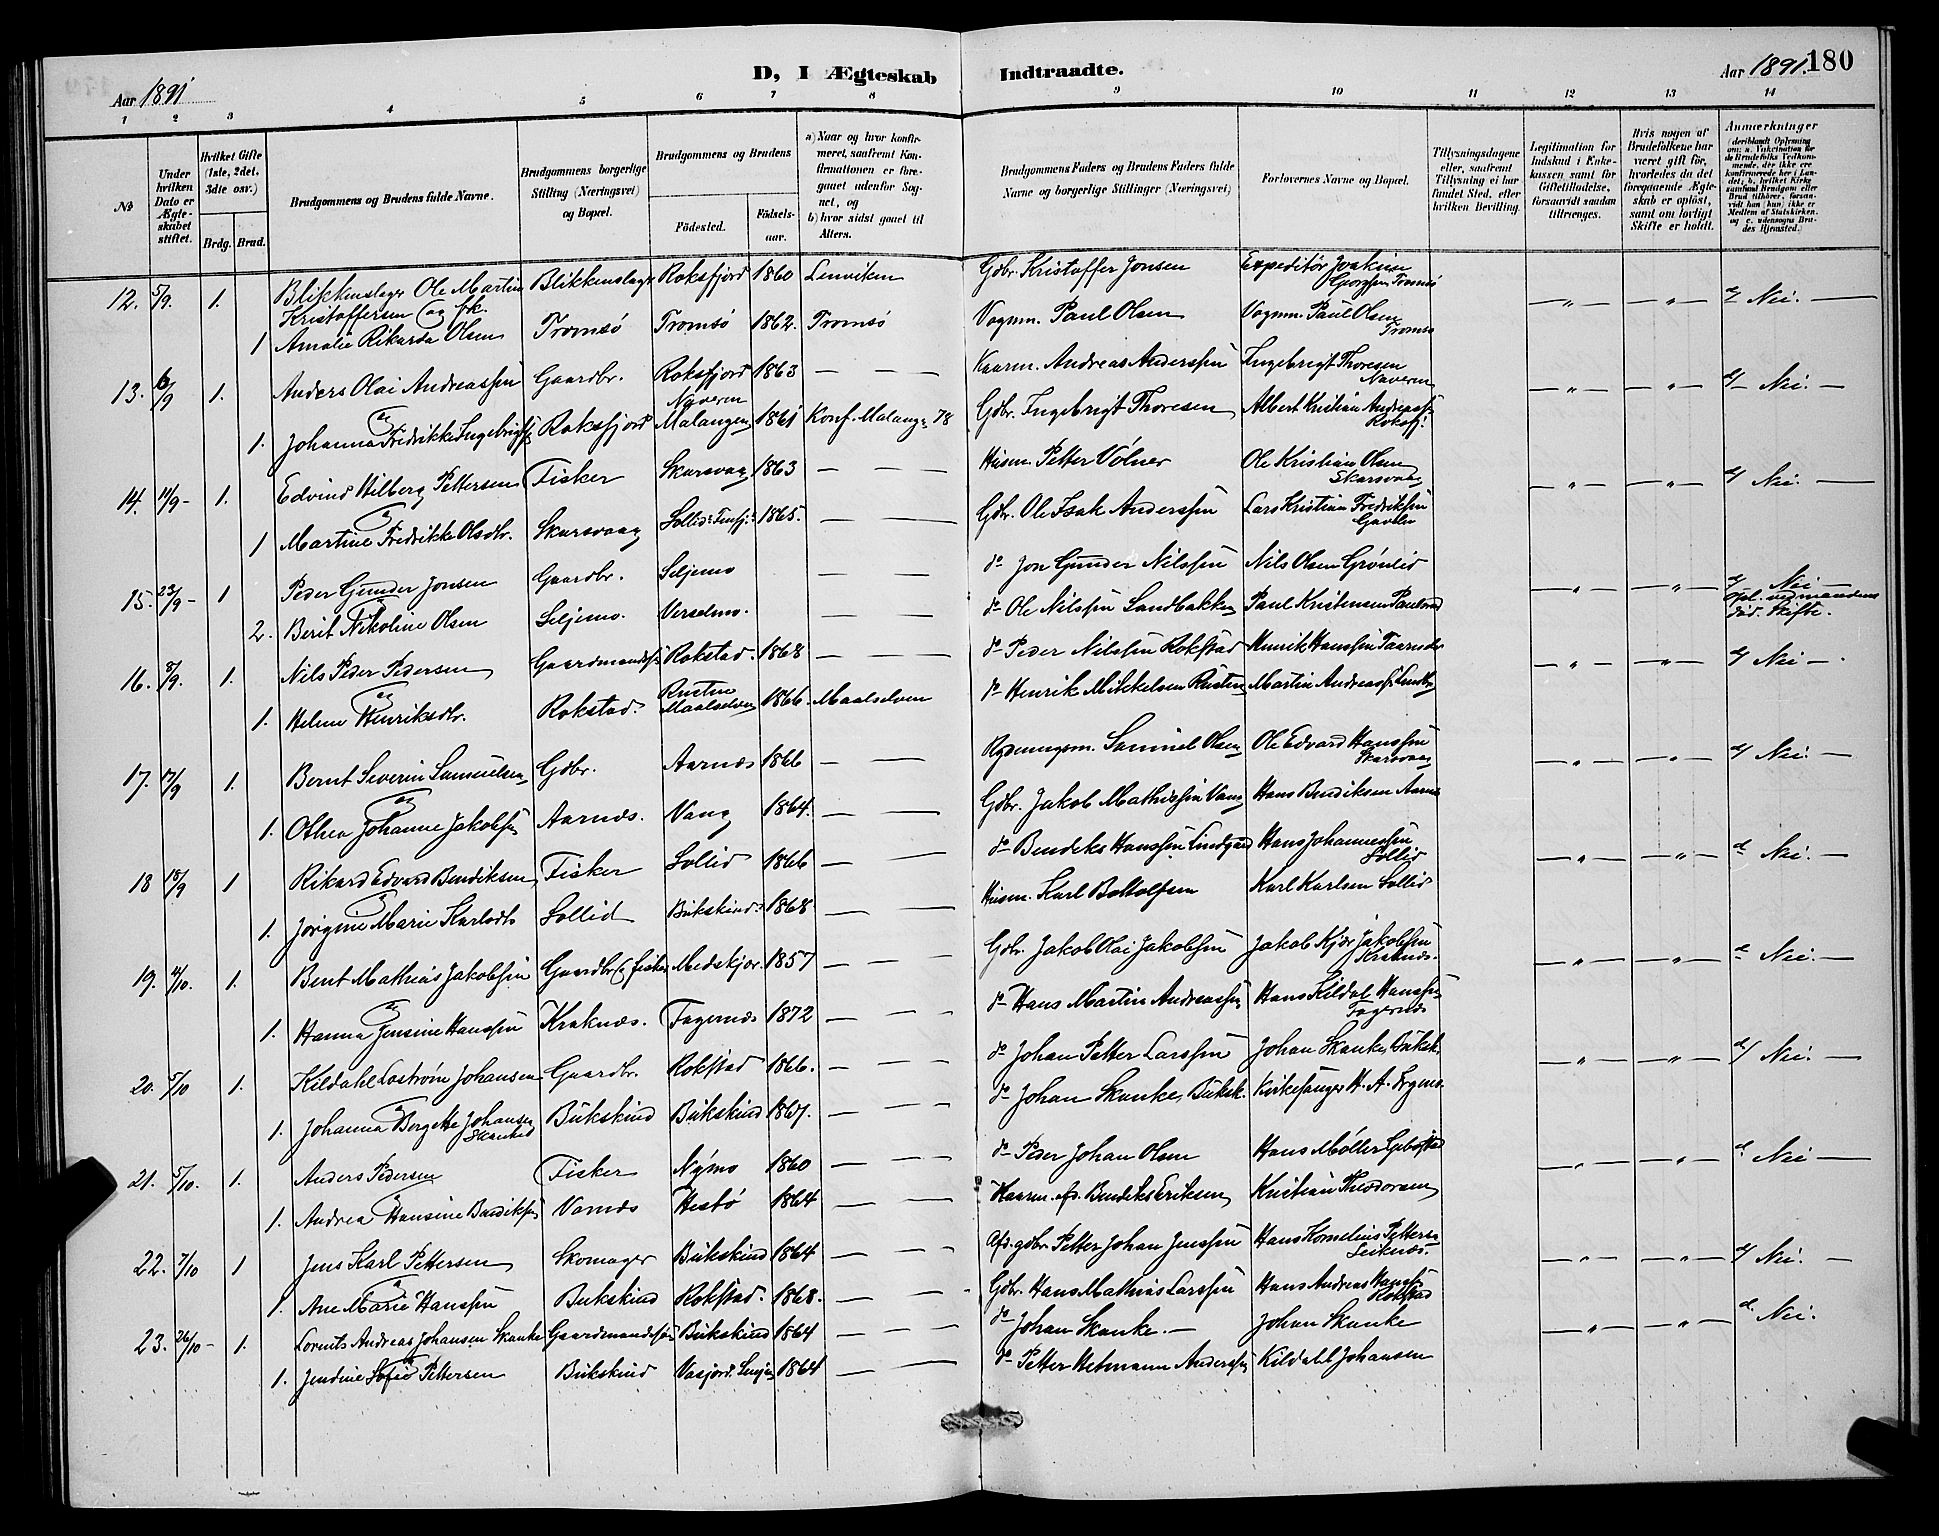 Aar 1891
D, I Ægteskab Indtraadte.
Aar 1891. 180
1 2 3 4 5 6 7 8 9 10 11 12 13 14
№
Under hvilken Dato er Ægteskabet stiftet.
Hvilket Gifte (1ste, 2det, 3die osv.)
Brdg. Brud.
Brudgommens og Brudens fulde Navne.
Brudgommens borgerlige Stilling (Næringsvei) og Bopæl.
Brudgommens og Brudens
Födested.
Födselsaar.
a) Naar og hvor konfirmeret, saafremt Konfirmationen er foregaaet udenfor Sognet, og
b) hvor sidst gaaet til Alters.
Brudgommens Faders og Brudens Faders fulde Navne og borgerlige Stillinger (Næringsvei)
Forlovernes Navne og Bopæl.
Tillysningsdagene eller, saafremt Tillysning ei har fundet Sted, efter hvilken Bevilling.
Legitimation for Indskud i Enkekassen samt for Giftetilladelse, forsaavidt saadan tiltrænges.
Hvis nogen af Brudefolkene har været gift før, hvorledes da det foregaaende Ægteskab er oplöst, samt om lovligt Skifte er holdt.
Anmærkninger (deriblandt Oplysning om: a. Vakcination for de Brudefolks Vedkommende, der ikke ere konfirmerede her i Landet, b. hvilket Kirkesamfund Brudgom eller Brud tilhörer, forsaavidt han (hun) ikke er Medlem af Statskirken, og c. udensogns Brudes Hjemsted.)
12. 5/9. 1. Blikkenslager Ole Martin Kristoffersen Blikkenslager Roksfjord 1860 Lenviken Gdbr. Kristoffer Jonsen Expeditör Joakim Tromsö a/ Nei.
1 Amalie Rikarda Olsen Tromsö Tromsö 1862. Tromsö Vognm. Paul Olsen Vognm. Paul Olsen Tromsö
13. 6/9 1. Anders Olai Andreassen Gaardbr. Roksfjord 1863 Kaarm. Andreas Anderssen Ingebrigt Thoresen Naveren a/ Nei.
1. Johanna Fredrikke Ingebrigts Roksfjord Naveren Malangen 1861 Konf. Malang. 78 Gdbr. Ingebrigt Thoresen Albert Kristian Andreass. Roksfj.
14. 11/9 1. Edvind Hilberg Pettersen Fisker Skarsvaag 1863 Husm. Petter Völner Ole Kristian Olsen Skarsvaag a/ Nei.
1 Martine Fredrikke Olsdtr. Skarsvaag 1865. Gdbr. Ole Isak Anderssen Lars Kristian Fredriksen
15. 23/9 1 Peder Gunder Jonsen Gaardbr. Seljemo do Jon Gunder Nilssen Nils Olsen Grönlid a/ Nei
2. Berit Nikoline Olsen Seljemo. Verselmo. do Ole Nilssen Sandbakken Paul Kristensen opl. ved mandens död. Skifte.
16. 8/9. 1. Nils Peder Pedersen Gaardmandss. Rokstad. 1868 do Peder Nilssen Rokstad Henrik Hanssen a/ Nei
1. Helene Henriksdtr. Rokstad. Rusten Maalselven 1866. Maalselven do Henrik Mikkelsen Rusten Martin Andreass.
17. 17/9 1. Bernt Severin Samuelsen Gdbr. Aarnes 1866 Samuel Olsen Ole Edvard Hanssen Skarsvaag a/ Nei.
1. Othea Johanne Jakobsen Aarnes. Vang 1864. Gdbr. Jakob Mathissen Vang Hans Bendiksen Aarnes
18 18/9 1 Rikard Edvard Bendiksen Fisker Sollid 1866 do Bendiks Hanssen Hans Johannessen Sollid a Nei.
1. Jörgine Marie Karlsdtr Sollid Bukskind 1868 Husm. Karl Bottolfsen Karl Karlsen Sollid
19. 4/10. 1. Bent Mathias Jakobssen Gaardbr. & fisker Medskjær. 1857 Gdbr. Jakob Olai Jakobssen Jakob Kjær Jakobssen Kraknes. a Nei.
1. Hanna Jensine Hanssen Kraknæs. Fagernæs 1872 do Hans Martin Andreassen Hans Kildal Hanssen Fagernæs
20. 5/10 1. Kildahl Loström Johansen Gaardbr. Rokstad 1866. do Johan Petter Larssen Johan Skanke Buksk. a/ Nei.
1. Johanna Bergette Johansen Skanke Bukskind Bukskind 1867. do Johan Skanke, Buksk. Kirkesanger H. A.
21. 5/10. 1. Anders Pedersen Fisker Nymo 1860 do Peder Johan Olsen Hans Möller Gibostad a Nei
1. Andrea Hansine Bendiksen Vamnæs Hestö 1864 Kaarm. afd. Bendiks Eriksen Kristian Theodorsen
22. 7/10 1 Jens Karl Pettersen Skomager Bukskind 1864 Afd. gdbr. Petter Johan Jenssen Hans Kornelius Petters. Leiknæs. a/ Nei.
1. Ane Marie Hanssen Bukskind Rokstad. 1868. Gdbr. Hans Mathias Larssen Hans Andreas Hanss. Rokstad
23. 26/10 1. Lorents Andreas Johansen Skanke Gaardmandssön Bukskind 1864 do Johan Skanke. Johan Skanke a. Nei.
1. Jendine Sofie Pettersen Bukskind 1864 do Petter Hetmann Anderssen Kildahl Johansen